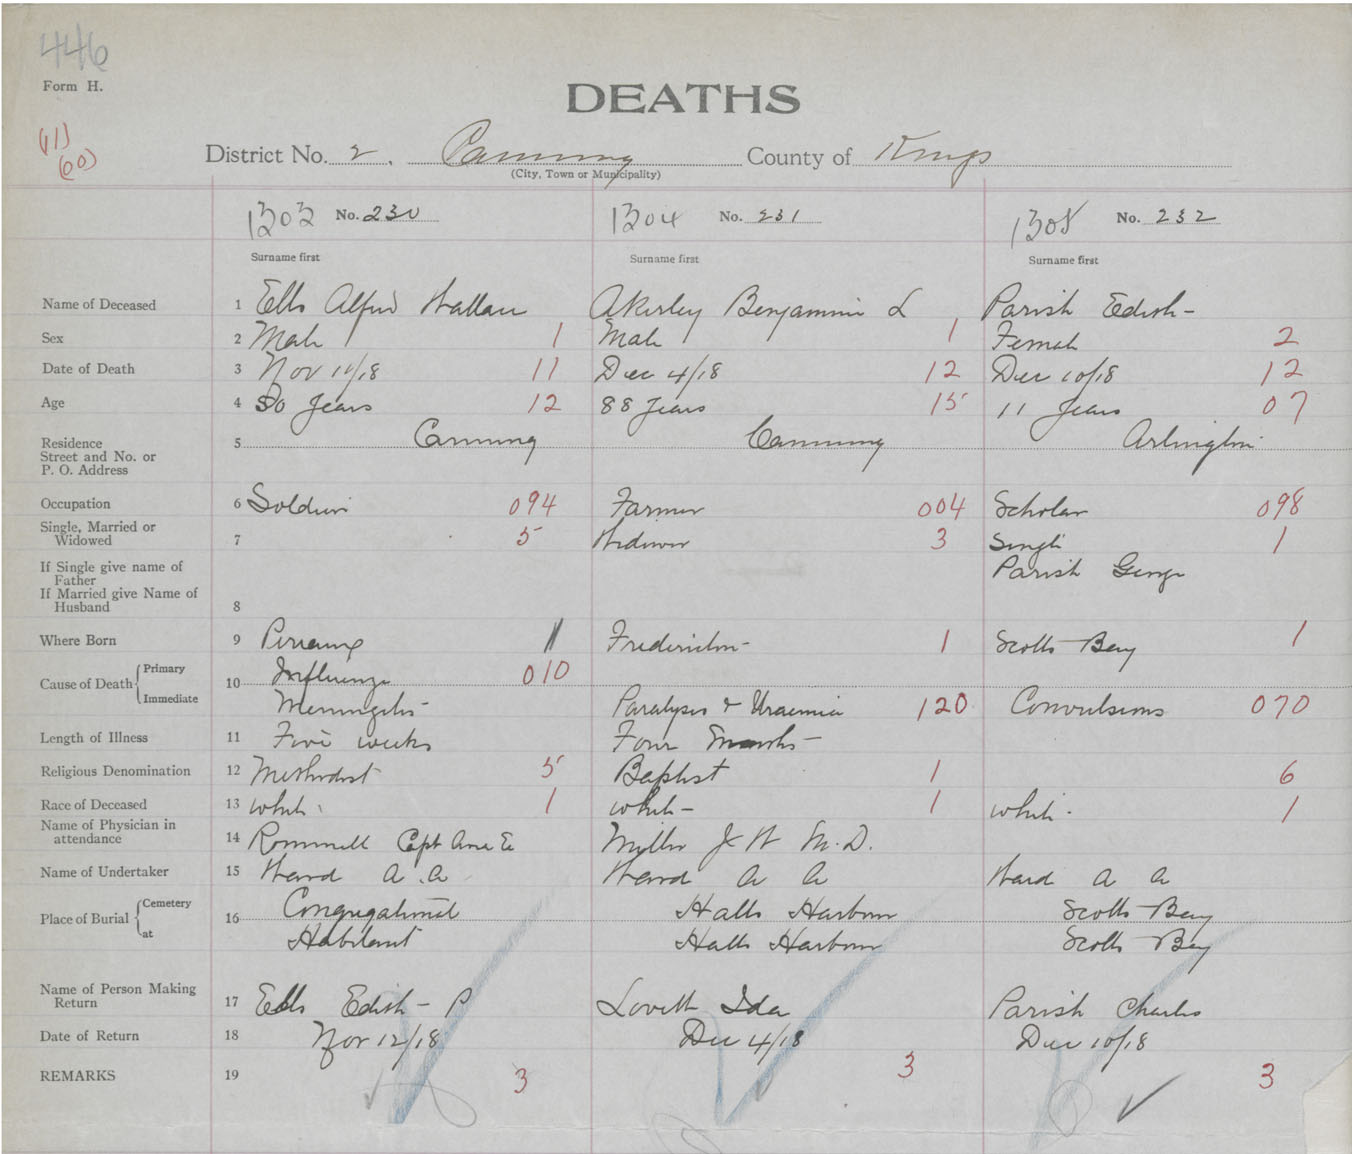 446
Form H.
DEATHS
(11)
(60)
District No. 2, Canning County of Kings
(City, Town or Municipality)
1303 No. 230 1304 No. 231 1305 No. 232
Surname first Surname first Surname first
Name of Deceased 1 Ells Alfred Wallace Akerley Benjamin L Parish Edith
Sex 2 Male 1 Male 1 Female 2
Date of Death 3 Nov 11/18 11 Dec 4/18 12 Dec 10/18 12
Age 4 50 Years 12 88 Years 15 11 Years 07
Residence
Street and No. or
P. O. Address 5 Canning Canning Arlington
Occupation 6 Soldier 094 Farmer 004 Scholar 098
Single, Married or
Widowed 7 5 Widower 3 Single 1
If Single give name of
Father Parish George
If Married give Name of
Husband 8
Where Born 9 1 Fredericton 1 Scotts Bay 1
Cause of Death Primary 10 Influenza 010
Immediate Meningitis Paralysis & Uraemia 120 Convulsions 070
Length of Illness 11 Five weeks Four Months
Religious Denomination 12 Methodist 5 Baptist 1 6
Race of Deceased 13 white 1 white 1 white 1
Name of Physician in
attendance 14 Capt Miller J W M.D.
Name of Undertaker 15 Ward A. A Ward A A Ward A A
Place of Burial Cemetery 16 Congregational Halls Harbour Scotts Bay
at Habitant Halls Harbour Scotts Bay
Name of Person Making
Return 17 Ells Edith P Lovett Ida Parish Charles
Date of Return 18 Nov 12/18 Dec 4/18 Dec 10/18
REMARKS 19 3 3 3